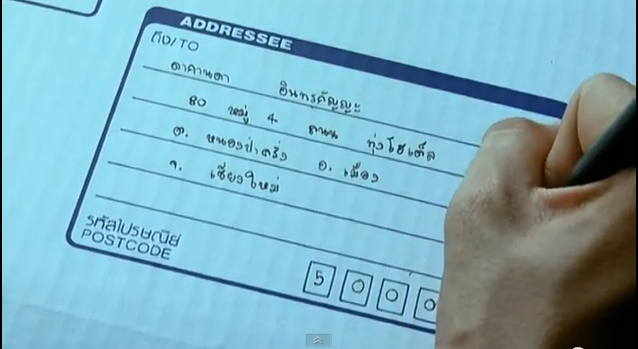 ADDRESSEE
ถึง/TO
ดากานดา อินทรกัญญะ
80 หมู่ 4 ถนน ทุ่งโฮเต็ล
ต. หนองป่าครั่ง อ. เมือง
จ. เชียงใหม่
รหัสไปรษณีย์
POSTCODE
5 0 0 0